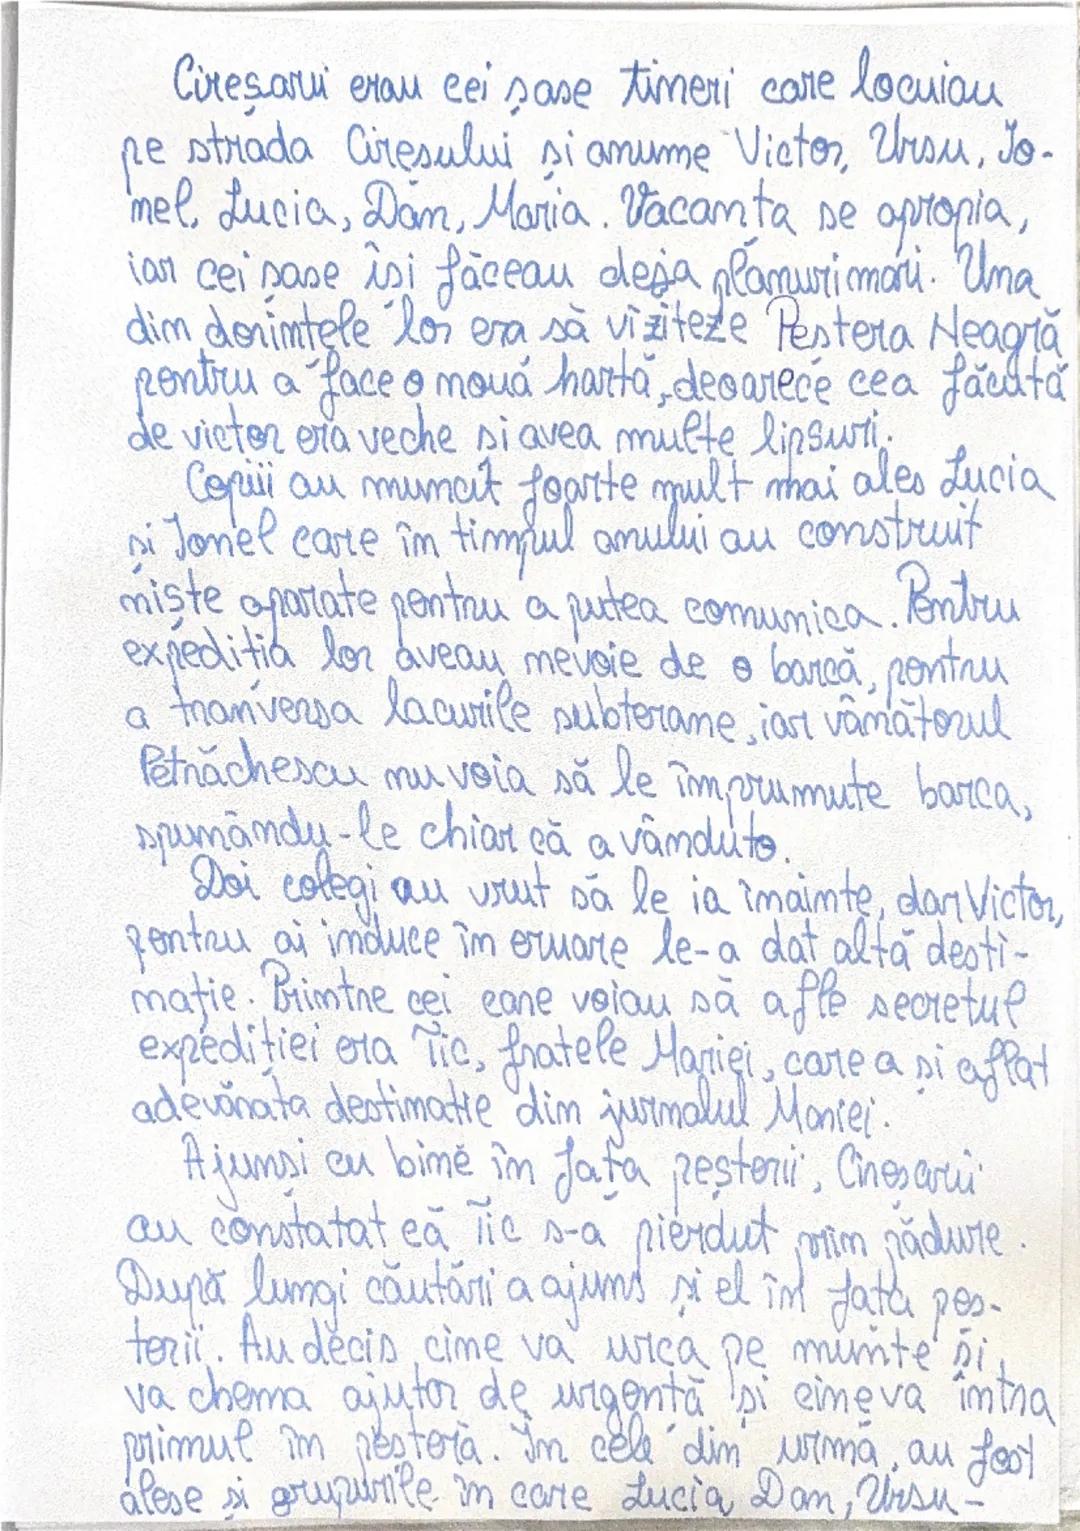 Cireșarii erau cei șase tineri care locuiau
pe strada Cireșului și anume Victor, Ursu, Io-
nel, Lucia, Dan, Maria. Vacanța se apropia,
iar cei șase își făceau deja planuri mari. Una
din dorințele lor era să viziteze Peștera Neagră
pentru a face o nouă hartă, deoarece cea făcută
de victor era veche și avea multe lipsuri.
Copiii au muncit foarte mult mai ales Lucia
și Ionel care în timpul anului au construit
niște aparate pentru a putea comunica. Pentru
expediția lor aveau nevoie de o barcă, pentru
a tranversa lacurile subterane, iar vânătorul
Petrăchescu nu voia să le împrumute barca,
spunându-le chiar că a vânduto.
Doi colegi au vrut să le ia înainte, dar Victor,
pentru ai induce în eruare le-a dat altă desti-
nație. Printre cei care voiau să afle secretul
expediției era Țic, fratele Mariei, care a și aflat
adevărata destinație din jurnalul Mariei.
Ajunși cu bine în fața peșterii, Cireșarii
au constatat că Țic s-a pierdut prin pădure.
După lungi căutări a ajuns și el în fața peș-
terii. Au decis cine va urca pe munte și
va chema ajutor de urgență și cine va intra
primul în peșteră. În cele din urmă, au fost
alese și grupurile în care Lucia, Dan, Ursu-